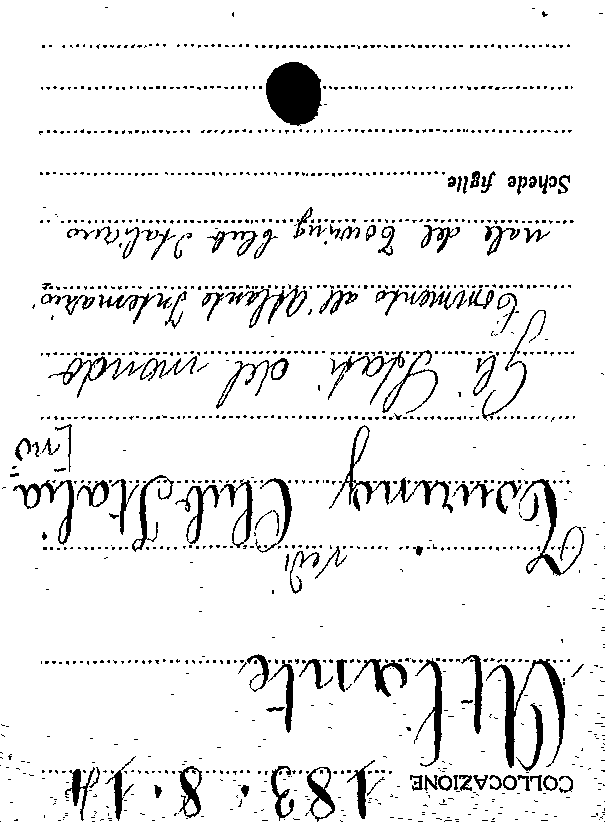 COLLOCAZIONE 183.8.14
Atlante
vedi
Touring Club Italia=
[no
Gli Stati del mondo
Commento all'Atlante Internazio,
nale del Touring Club Italiano
Schede figlie